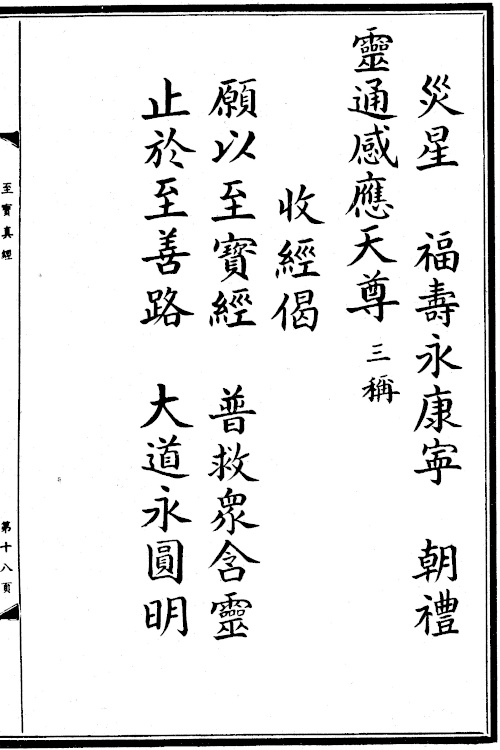 災星　福壽永康寧　朝禮
靈通感應天尊三稱
收經偈
願以至寶經　普救眾含靈
止於至善路　大道永圓明
至寶真經　第十八頁